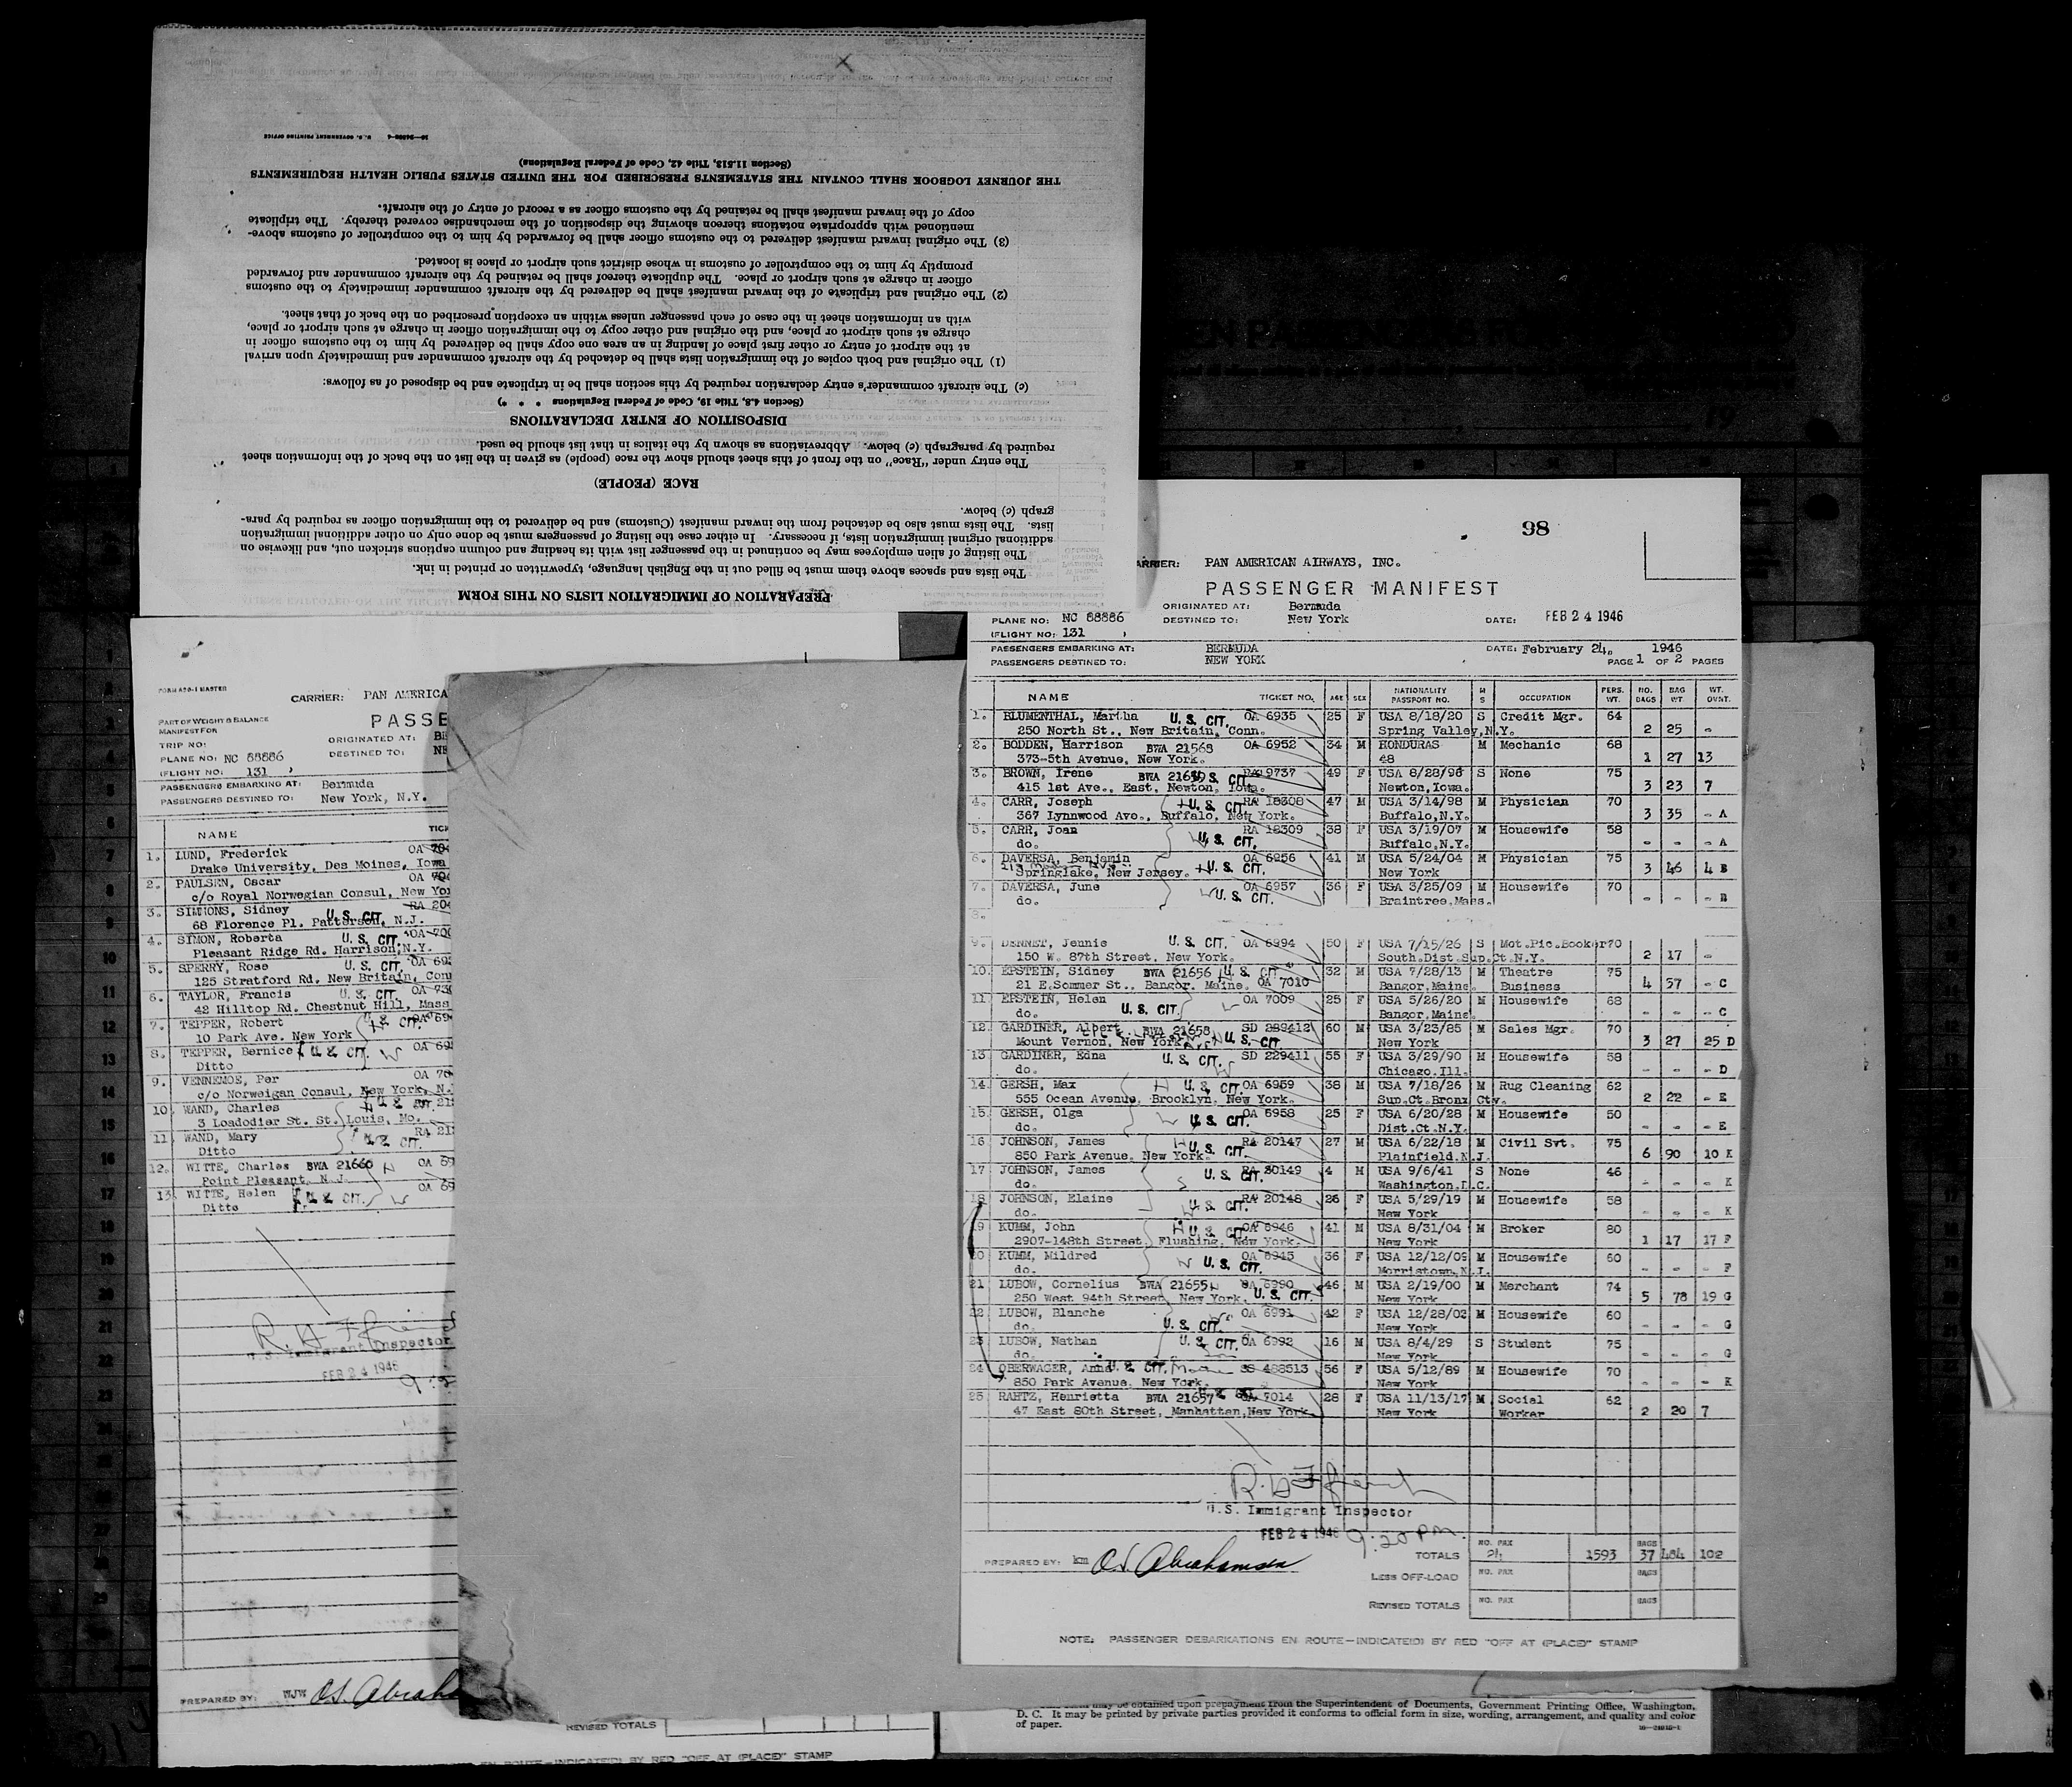 PREPARATION OF IMMIGRATION LISTS ON THIS FORM
The lists and spaces above them must be filled out in the English language, typewritten or printed in ink.
The listing of alien employees may be continued in the passenger list with its heading and column captions stricken out, and likewise on
additional original immigration lists, if necessary. In either case the listing of passengers must be done only on other additional immigration
lists. The lists must also be detached from the inward manifest (Customs) and be delivered to the immigration officer as required by para-
graph (c) below.
RACE (PEOPLE)
The entry under "Race" on the front of this sheet should show the race (people) as given in the list on the back of the information sheet
required by paragraph (c) below. Abbreviations as shown by the italics in that list should be used.
DISPOSITION OF ENTRY DECLARATIONS
(Section 4.8, Title 19, Code of Federal Regulations * * *)
(c) The aircraft commander's entry declaration required by this section shall be in triplicate and be disposed of as follows:
(1) The original and both copies of the immigration lists shall be detached by the aircraft commander and immediately upon arrival
at the airport of entry or other first place of landing in an area one copy shall be delivered by him to the customs officer in
charge at such airport or place, and the original and other copy to the immigration officer in charge at such airport or place,
with an information sheet in the case of each passenger unless within an exception prescribed on the back of that sheet.
(2) The original and triplicate of the inward manifest shall be delivered by the aircraft commander immediately to the customs
officer in charge at such airport or place. The duplicate thereof shall be retained by the aircraft commander and forwarded
promptly by him to the comptroller of customs in whose district such airport or place is located.
(3) The original inward manifest delivered to the customs officer shall be forwarded by him to the comptroller of customs above-
mentioned with appropriate notations thereon showing the disposition of the merchandise covered thereby. The triplicate
copy of the inward manifest shall be retained by the customs officer as a record of entry of the aircraft.
THE JOURNEY LOGBOOK SHALL CONTAIN THE STATEMENTS PRESCRIBED FOR THE UNITED STATES PUBLIC HEALTH REQUIREMENTS
(Section 11.513, Title 42, Code of Federal Regulations)
U. S. GOVERNMENT PRINTING OFFICE
CARRIER: PAN AMERICA
PART OF WEIGHT & BALANCE
MANIFEST FOR
PASSE
TRIP NO:
ORIGINATED AT: BE
PLANE NO: NC 88886
DESTINED TO: NE
(FLIGHT NO: 131
PASSENGERS EMBARKING AT: Bermuda
PASSENGERS DESTINED TO: New York, N.Y.
NAME TICK
1. LUND, Frederick OA
Drake University, Des Moines, Iowa
2. PAULSEN, Oscar OA
c/o Royal Norwegian Consul, New Yor
3. SIMMONS, Sidney U. S. CIT. RA 20
68 Florence Pl. Patterson, N.J.
4. SIMON, Roberta U. S. CIT. OA 700
Pleasant Ridge Rd. Harrison, N.Y.
5. SPERRY, Rose U. S. CIT. OA 69
125 Stratford Rd, New Britain, Conn
6. TAYLOR, Francis U. S. CIT. OA 73
42 Hilltop Rd. Chestnut Hill, Mass
7. TEPPER, Robert U. S. CIT. OA 69
10 Park Ave. New York
8. TEPPER, Bernice U. S. CIT. W OA 69
Ditto
9. VENNEMOE, Per OA 70
c/o Norweigan Consul, New York, N.
10. WAND, Charles H U. S. CIT. RA 21
3 Loadodier St. St. Louis, Mo.
11. WAND, Mary U. S. CIT. RA 21
Ditto
12. WITTE, Charles BWA 21660 H OA 69
Point Pleasant, N.J.
13. WITTE, Helen U. S. CIT. W OA 69
Ditto
U.S. Immigrant Inspector
FEB 24 1946
PREPARED BY: WJW O.S. Abraha
REVISED TOTALS
EN ROUTE—INDICATE(D) BY RED "OFF AT (PLACE)" STAMP
98
ARRIER: PAN AMERICAN AIRWAYS, INC.
PASSENGER MANIFEST
ORIGINATED AT: Bermuda
PLANE NO: NC 88886 DESTINED TO: New York DATE: FEB 24 1946
(FLIGHT NO: 131 )
PASSENGERS EMBARKING AT: BERMUDA DATE: February 24, 1946
PASSENGERS DESTINED TO: NEW YORK PAGE 1 OF 2 PAGES
NAME TICKET NO. AGE SEX NATIONALITY PASSPORT NO. M S OCCUPATION PERS. WT. NO. BAGS BAG WT. WT. OVWT.
1. BLUMENTHAL, Martha U. S. CIT. OA 6935 25 F USA 8/18/20 S Credit Mgr. 64
250 North St., New Britain, Conn. Spring Valley, N.Y. 2 25 -
2. BODDEN, Harrison BWA 21568 OA 6952 34 M HONDURAS M Mechanic 68
373-5th Avenue, New York. 48 1 27 13
3. BROWN, Irene BWA 21659 U. S. CIT. RA 9737 49 F USA 8/28/96 S None 75
415 1st Ave., East, Newton, Iowa. Newton, Iowa. 3 23 7
4. CARR, Joseph H U. S. CIT. RA 18308 47 M USA 3/14/98 M Physician 70
367 Lynnwood Ave., Buffalo, New York. Buffalo, N.Y. 3 35 - A
5. CARR, Joan W U. S. CIT. RA 18309 38 F USA 3/19/07 M Housewife 58
do. Buffalo, N.Y. - - - A
6. DAVERSA, Benjamin H U. S. CIT. OA 6956 41 M USA 5/24/04 M Physician 75
Springlake, New Jersey. New York 3 46 4 B
7. DAVERSA, June W U. S. CIT. OA 6957 36 F USA 3/25/09 M Housewife 70
do. Braintree, Mass. - - - B
8.
9. DENNET, Jennie U. S. CIT. OA 6994 50 F USA 7/15/26 S Mot.Pic.Booker 70
150 W. 87th Street, New York. South.Dist.Sup.Ct.N.Y. 2 17 -
10. EPSTEIN, Sidney BWA 21656 U. S. CIT. 32 M USA 7/28/13 M Theatre 75
21 E.Sommer St., Bangor, Maine. OA 7010 Bangor, Maine. Business 4 37 - C
11. EPSTEIN, Helen U. S. CIT. W OA 7009 25 F USA 5/26/20 M Housewife 68
do. Bangor, Maine. - - - C
12. GARDINER, Albert BWA 21658 U. S. CIT. SD 229412 60 M USA 3/23/85 M Sales Mgr. 70
Mount Vernon, New York. New York 3 27 25 D
13. GARDINER, Edna U. S. CIT. W SD 229411 55 F USA 3/29/90 M Housewife 58
do. Chicago, Ill. - - - D
14. GERSH, Max H U. S. CIT. OA 6959 38 M USA 7/18/26 M Rug Cleaning 62
555 Ocean Avenue, Brooklyn, New York. Sup.Ct.Bronx Cty. 2 22 - E
15. GERSH, Olga W U. S. CIT. OA 6958 25 F USA 6/20/28 M Housewife 50
do. Dist.Ct.N.Y. - - - E
16. JOHNSON, James H U. S. CIT. RA 20147 27 M USA 6/22/18 M Civil Svt. 75
850 Park Avenue, New York. Plainfield, N.J. 6 90 10 K
17. JOHNSON, James S U. S. CIT. RA 20149 4 M USA 9/6/41 S None 46
do. Washington, D.C. - - - K
18. JOHNSON, Elaine W U. S. CIT. RA 20148 26 F USA 5/29/19 M Housewife 58
do. New York - - - K
19. KUMM, John H U. S. CIT. OA 6946 41 M USA 8/31/04 M Broker 80
2907-148th Street, Flushing, New York. New York 1 17 17 F
20. KUMM, Mildred W U. S. CIT. OA 6945 36 F USA 12/12/09 M Housewife 60
do. Morristown, N.J. - - - F
21. LUBOW, Cornelius BWA 21655 H U. S. CIT. OA 6990 46 M USA 2/19/00 M Merchant 74
250 West 94th Street, New York. New York 5 78 19 G
22. LUBOW, Blanche U. S. CIT. W OA 6991 42 F USA 12/28/02 M Housewife 60
do. New York - - - G
23. LUBOW, Nathan U. S. CIT. OA 6992 16 M USA 8/4/29 S Student 75
do. New York - - - G
24. OBERWAGER, Anna U. S. CIT. SS 488513 56 F USA 5/12/89 M Housewife 70
850 Park Avenue, New York. New York - - - K
25. RAHTZ, Henrietta BWA 21657 OA 7014 28 F USA 11/13/17 M Social 62
47 East 80th Street, Manhattan, New York. New York Worker 2 20 7
U.S. Immigrant Inspector
FEB 24 1946 9:20 PM.
PREPARED BY: km O.S. Abrahamsen
TOTALS NO. PAX 24 1593 BAGS 37 484 102
LESS OFF-LOAD NO. PAX BAGS
REVISED TOTALS NO. PAX BAGS
NOTE: PASSENGER DEBARKATIONS EN ROUTE—INDICATE(D) BY RED "OFF AT (PLACE)" STAMP
may be obtained upon prepayment from the Superintendent of Documents, Government Printing Office, Washington,
D. C. It may be printed by private parties provided it conforms to official form in size, wording, arrangement, and quality and color
of paper.